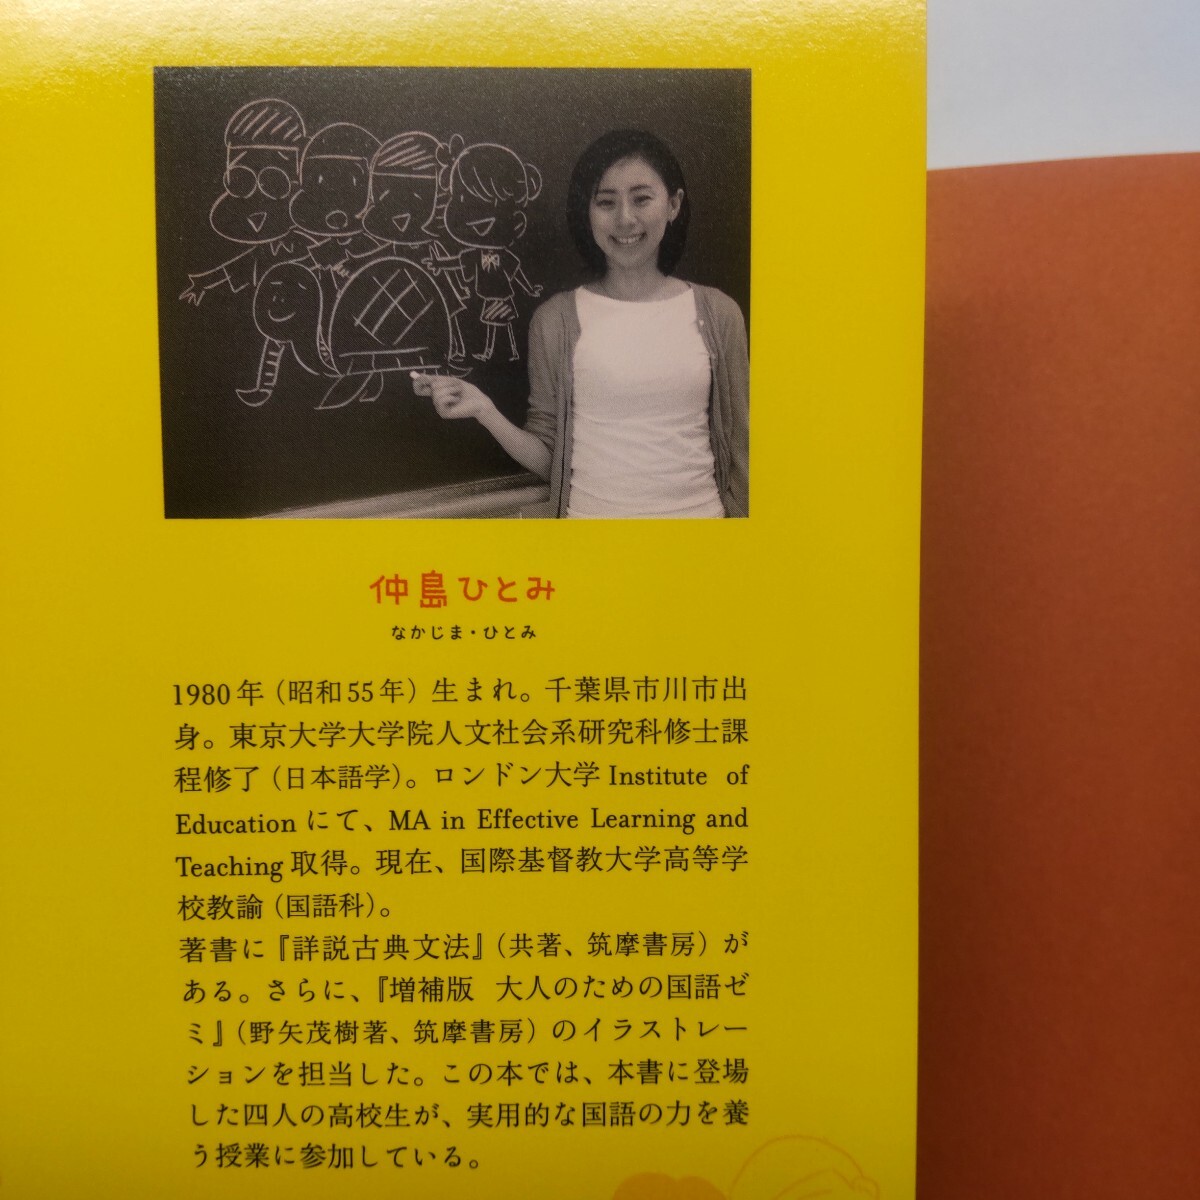 仲島ひとみ
なかじま・ひとみ
1980年（昭和55年）生まれ。千葉県市川市出
身。東京大学大学院人文社会系研究科修士課
程修了（日本語学）。ロンドン大学 Institute of
Education にて、MA in Effective Learning and
Teaching 取得。現在、国際基督教大学高等学
校教諭（国語科）。
著書に『詳説古典文法』（共著、筑摩書房）が
ある。さらに、『増補版 大人のための国語ゼ
ミ』（野矢茂樹著、筑摩書房）のイラストレー
ションを担当した。この本では、本書に登場
した四人の高校生が、実用的な国語の力を養
う授業に参加している。